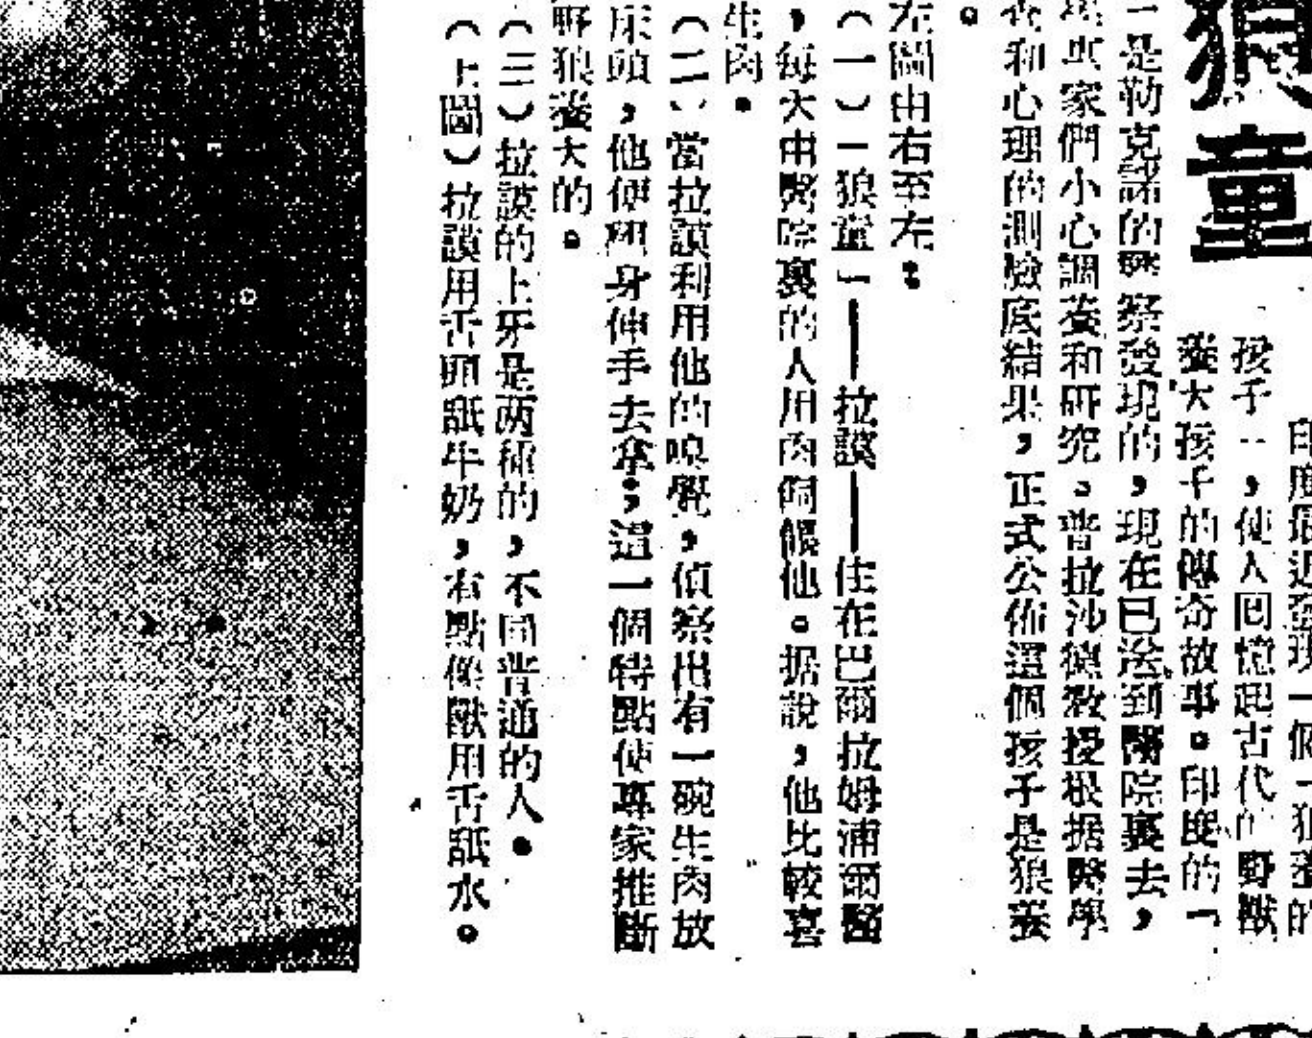 狼童
印度最近發現一個「狼養的
孩子」，使人囘憶起古代的野獸
養大孩子的傳奇故事。印度的「
」是勒克諾的警察發現的，現在已送到醫院裏去，
專家們小心調養和研究。普拉沙德教授根据醫學
和心理的測驗底結果，正式公佈這個孩子是狼養
。
左圖由右至左：
（一）「狼童」——拉謨——住在巴爾拉姆浦爾醫
，每天由醫院裏的人用肉飼餵他。据說，他比較喜
生肉。
（二）當拉謨利用他的嗅覺，偵察出有一碗生肉放
床頭，他便翻身伸手去拿；這一個特點使專家推斷
野狼養大的。
（三）拉謨的上牙是两種的，不同普通的人。
（上圖）拉謨用舌頭舐牛奶，有點像獸用舌舐水。